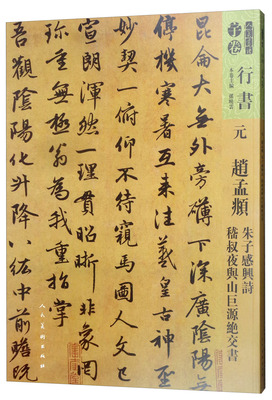 子卷
行書
元
趙孟頫
朱子感興詩
嵇叔夜與山巨源絶交書
昆侖大無外旁礴下深廣陰陽無
停機寒暑互来往羲皇古神聖
妙契一俯仰不待窺馬圖人文已
宣朗渾然一理貫昭晰非象罔
珍重無極翁為我重指掌
吾觀陰陽化升降八紘中前瞻既
人民美術出版社